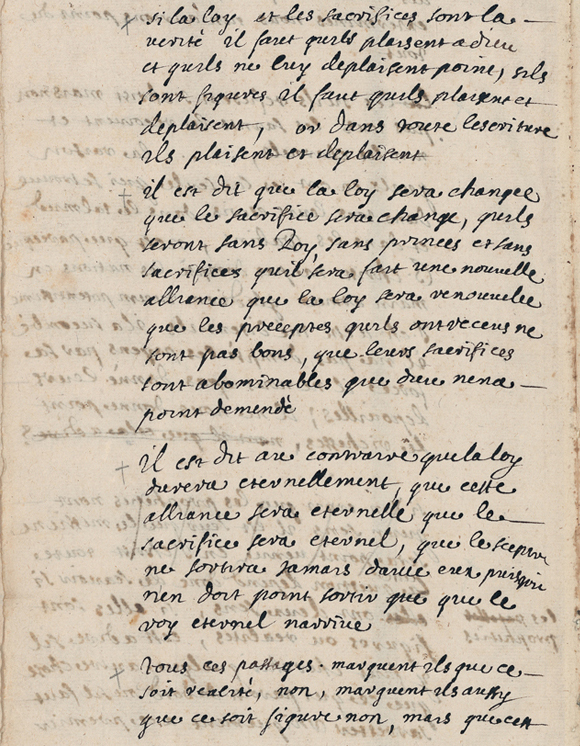 si la loy et les sacrifices sont la
verité il faut quils plaisent a dieu
et quils ne luy deplaisent point, sils
sont figures il faut quils plaisent et
deplaisent, or dans toute lescriture
ils plaisent et deplaisent
il est dit que la loy sera changee
que le sacrifice sera change, quils
seront sans Roy, sans princes et sans
sacrifices quil sera fait une nouvelle
alliance que la loy sera renouvelee
que les preceptes quils ont receus ne
sont pas bons, que leurs sacrifices
sont abominables que dieu nen a
point demendé
il est dit au contrarre que la loy
durera eternellement, que cette
alliance sera eternelle que le
sacrifice sera eternel, que le sceptre
ne sortira jamais davec eux puisquil
nen doit point sortir que que le
roy eternel narrive
tous ces passages marquent ils que ce
soit realité, non, marquent ils aussy
que ce soit figure non, mais que cest